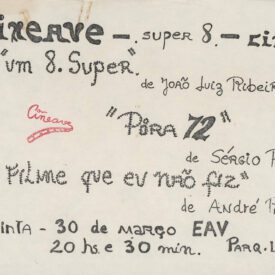 ineave — super 8. — ci
"um 8. Super"
de João Luiz Ribei
Cineave
"Póra 72"
de Sérgio
Filme que eu não fiz"
de André
inta - 30 de março EAV
20 hs e 30 min. Parq. L